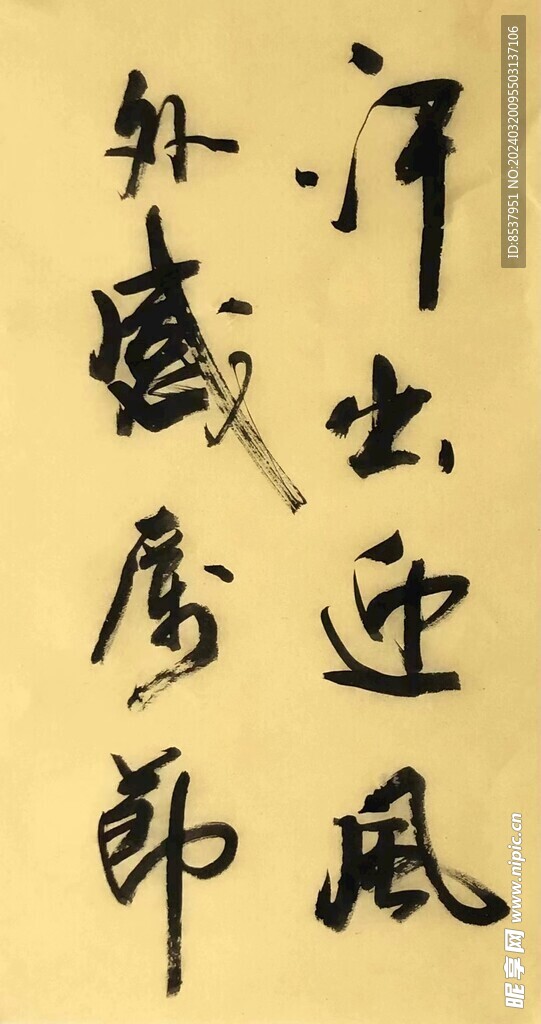 汗出迎風
外感節
ID:8537951 NO:20240320095503137106
昵享网 www.nipic.cn